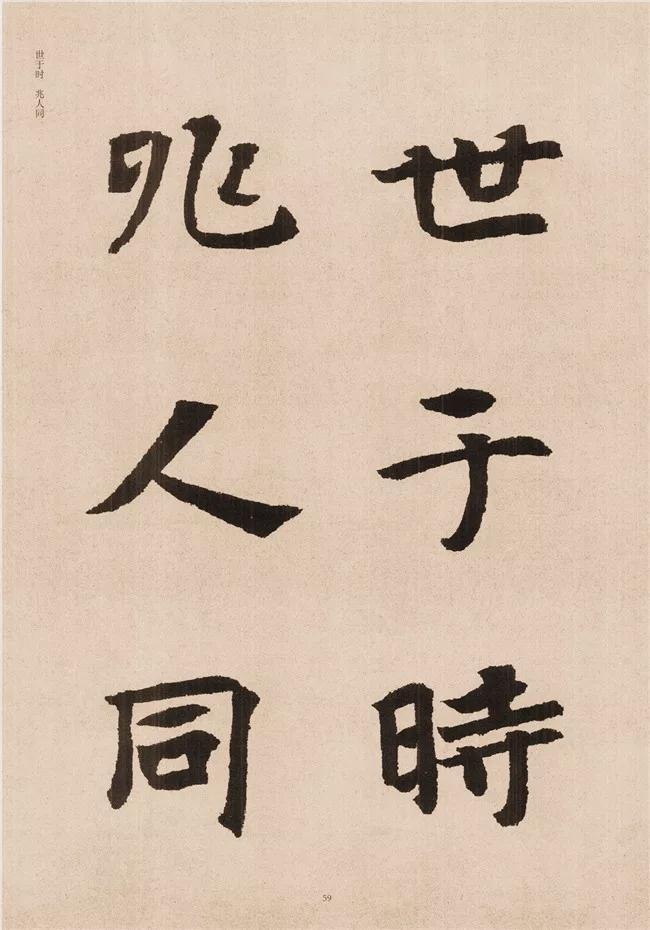 世于时 兆人同
世于時
兆人同
59